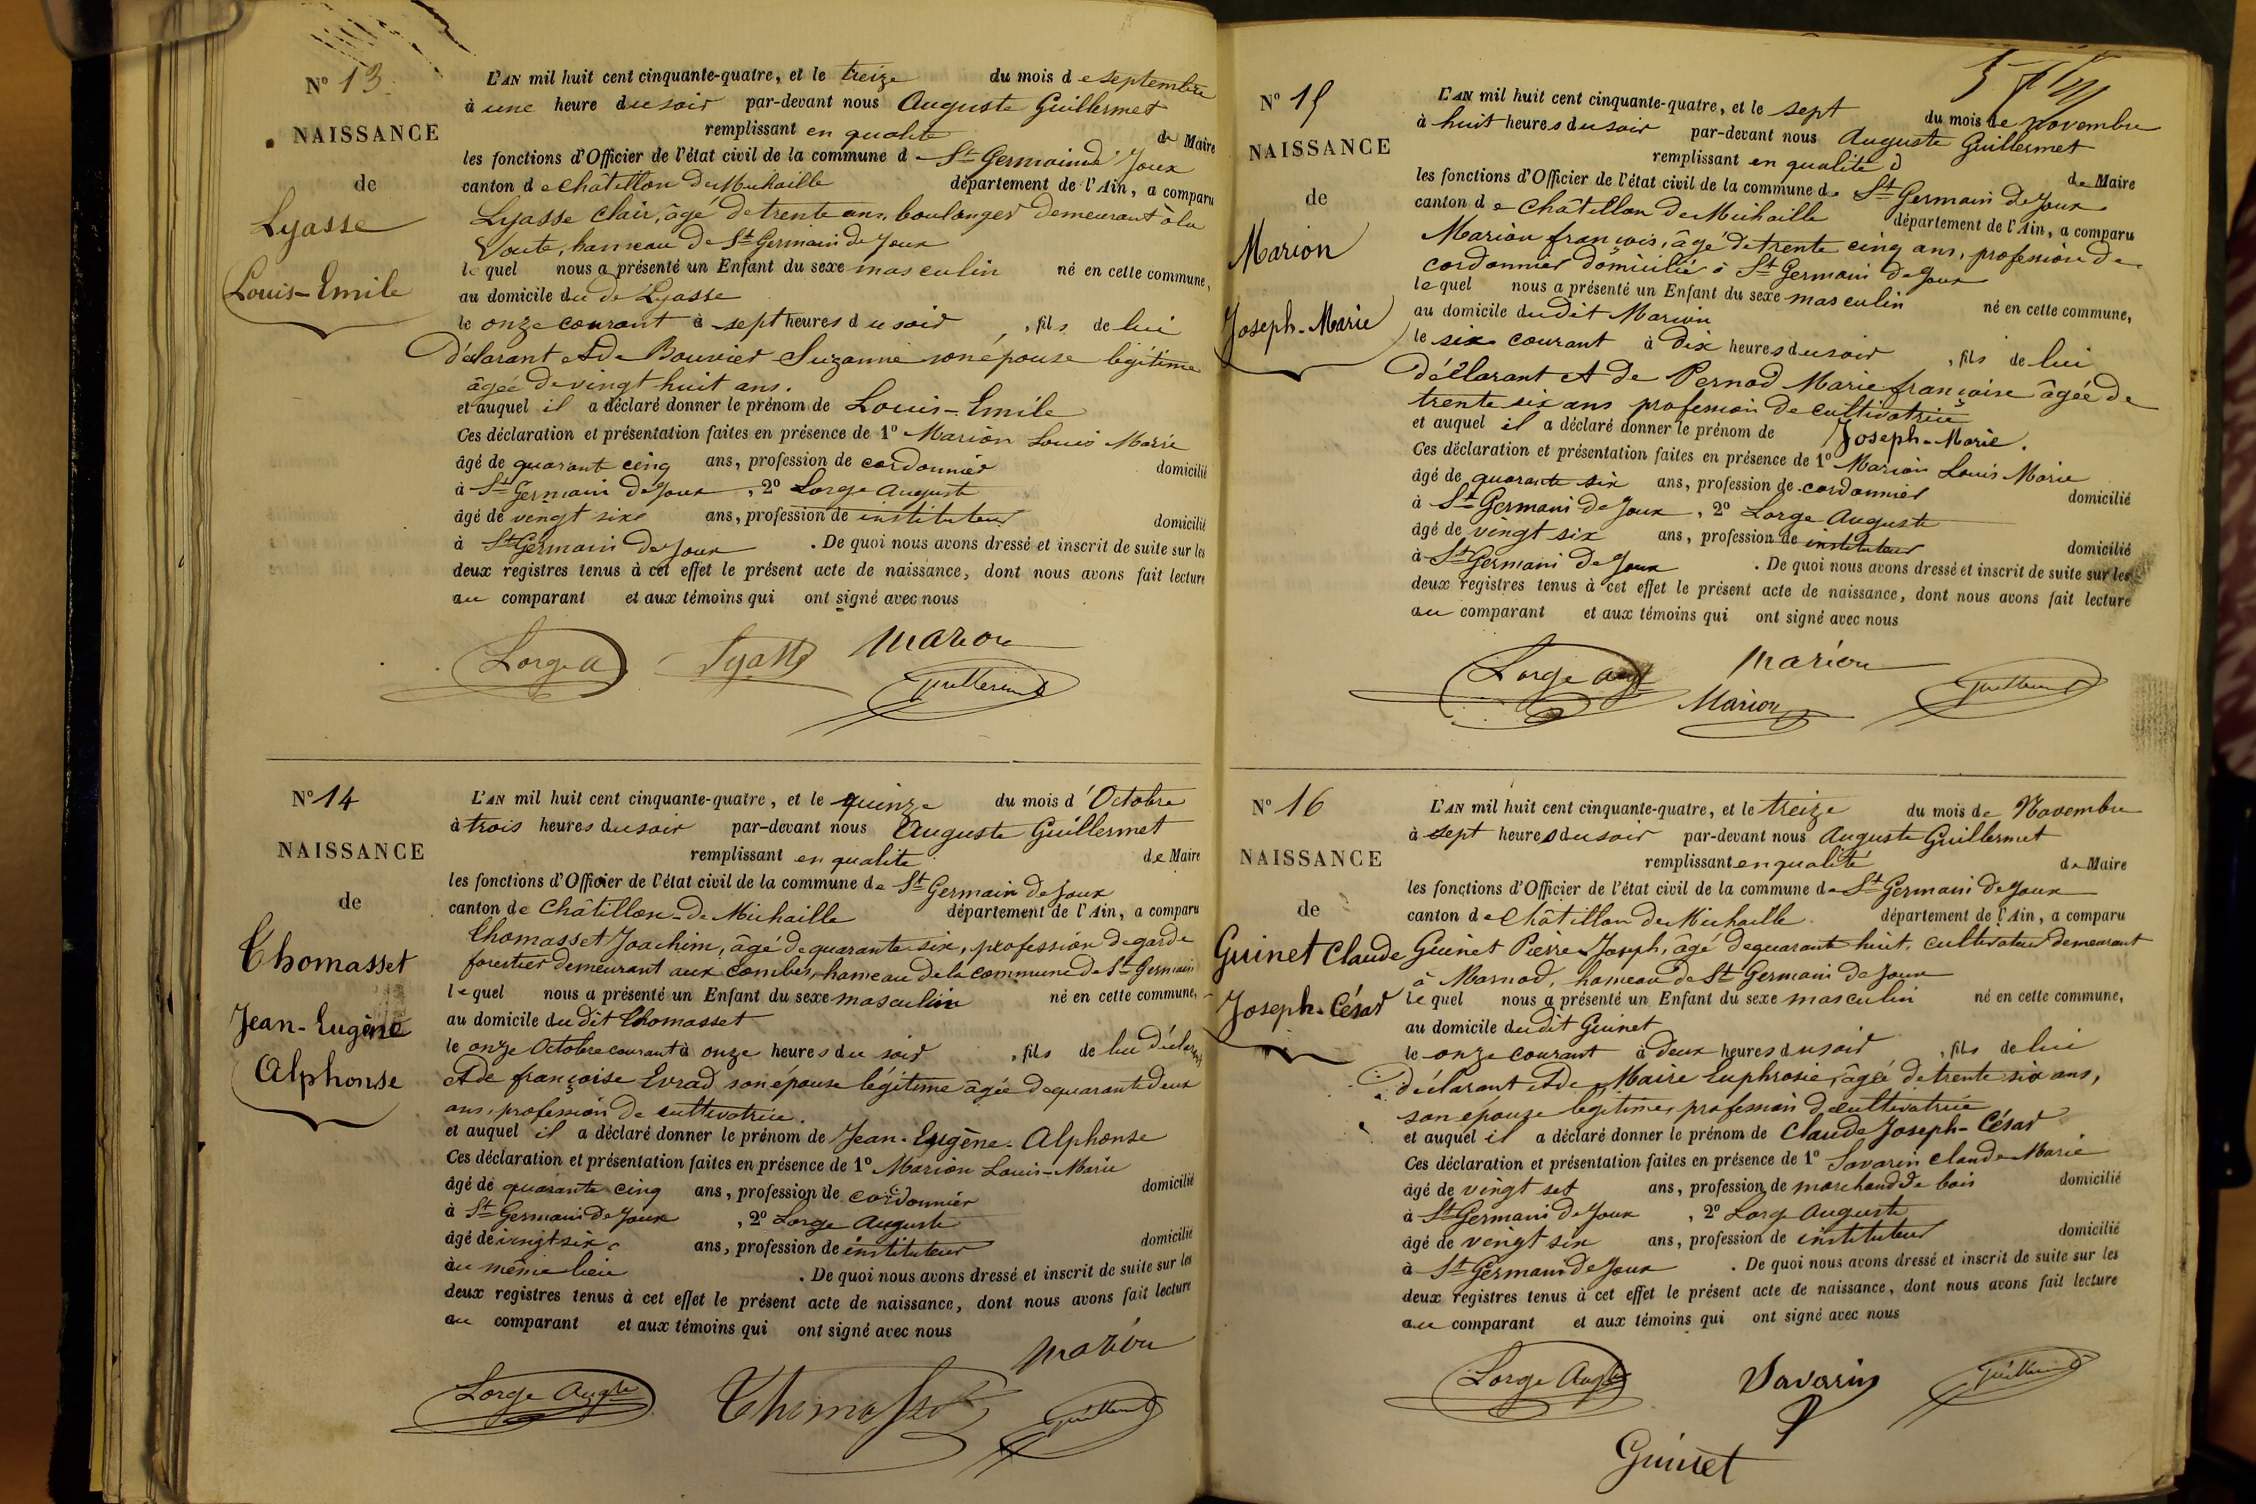 No 13.
NAISSANCE
de
Lyasse
Louis-Emile
L'AN mil huit cent cinquante-quatre, et le treize du mois de septembre
à une heure du soir par-devant nous Auguste Guillermet
remplissant en qualité de Maire
les fonctions d'Officier de l'état civil de la commune de St Germain de Joux
canton de Châtillon de Michaille département de l'Ain, a comparu
Lyasse Clair, âgé de trente ans, boulanger demeurant à la
Voute, hameau de St Germain de Joux
lequel nous a présenté un Enfant du sexe masculin né en cette commune,
au domicile du de Lyasse
le onze courant à sept heures du soir, fils de lui
déclarant et de Bouvier Suzanne son épouse légitime
âgée de vingt huit ans.
et auquel il a déclaré donner le prénom de Louis-Emile
Ces déclaration et présentation faites en présence de 1º Marion Louis Marie
âgé de quarante cinq ans, profession de cordonnier domicilié
à St Germain de Joux, 2º Lorge Auguste
âgé de vingt six ans, profession de instituteur domicilié
à St Germain de Joux. De quoi nous avons dressé et inscrit de suite sur les
deux registres tenus à cet effet le présent acte de naissance, dont nous avons fait lecture
au comparant et aux témoins qui ont signé avec nous
Lorge A Lyasse Marion
Guillermet
No 14
NAISSANCE
de
Thomasset
Jean-Eugène
Alphonse
L'AN mil huit cent cinquante-quatre, et le quinze du mois d'Octobre
à trois heures du soir par-devant nous Auguste Guillermet
remplissant en qualité de Maire
les fonctions d'Officier de l'état civil de la commune de St Germain de Joux
canton de Châtillon-de Michaille département de l'Ain, a comparu
Thomasset Joachim, âgé de quarante six, profession de garde
forestier demeurant aux Combes, hameau de la commune de St Germain
lequel nous a présenté un Enfant du sexe masculin né en cette commune,
au domicile du dit Thomasset
le onze Octobre courant à onze heures du soir, fils de lui déclarant
et de françoise Evrad son épouse légitime âgée de quarante deux
ans, profession de cultivatrice.
et auquel il a déclaré donner le prénom de Jean-Eugène-Alphonse
Ces déclaration et présentation faites en présence de 1º Marion Louis-Marie
âgé de quarante cinq ans, profession de cordonnier domicilié
à St Germain de Joux, 2º Lorge Auguste
âgé de vingt six ans, profession de instituteur domicilié
au même lieu. De quoi nous avons dressé et inscrit de suite sur les
deux registres tenus à cet effet le présent acte de naissance, dont nous avons fait lecture
au comparant et aux témoins qui ont signé avec nous
Marion
Lorge Augte Thomasset Guillermet
No 15
NAISSANCE
de
Marion
Joseph-Marie
L'AN mil huit cent cinquante-quatre, et le sept du mois de Novembre
à huit heures du soir par-devant nous Auguste Guillermet
remplissant en qualité d de Maire
les fonctions d'Officier de l'état civil de la commune de St Germain de Joux
canton de Châtillon de Michaille département de l'Ain, a comparu
Marion françois, âgé de trente cinq ans, profession de
cordonnier domicilié à St Germain de Joux
lequel nous a présenté un Enfant du sexe masculin né en cette commune,
au domicile du dit Marion
le six courant à dix heures du soir, fils de lui
déclarant et de Pernod Marie françoise âgée de
trente six ans profession de cultivatrice
et auquel il a déclaré donner le prénom de Joseph-Marie.
Ces déclaration et présentation faites en présence de 1º Marion Louis Marie
âgé de quarante six ans, profession de cordonnier domicilié
à St Germain de Joux, 2º Lorge Auguste
âgé de vingt six ans, profession de instituteur domicilié
à St Germain de Joux. De quoi nous avons dressé et inscrit de suite sur les
deux registres tenus à cet effet le présent acte de naissance, dont nous avons fait lecture
au comparant et aux témoins qui ont signé avec nous
Lorge Augt Marion
Marion Guillermet
No 16
NAISSANCE
de
Guinet Claude
Joseph-César
L'AN mil huit cent cinquante-quatre, et le treize du mois de Novembre
à sept heures du soir par-devant nous Auguste Guillermet
remplissant en qualité de Maire
les fonctions d'Officier de l'état civil de la commune de St Germain de Joux
canton de Châtillon de Michaille département de l'Ain, a comparu
Guinet Pierre Joseph, âgé de quarante huit, cultivateur demeurant
à Marnod, hameau de St Germain de Joux
lequel nous a présenté un Enfant du sexe masculin né en cette commune,
au domicile du dit Guinet
le onze courant à deux heures du soir, fils de lui
déclarant et de Maire Euphrosie, âgée de trente six ans,
son épouse légitime, profession de cultivatrice
et auquel il a déclaré donner le prénom de Claude Joseph-César
Ces déclaration et présentation faites en présence de 1º Savarin Claude Marie
âgé de vingt set ans, profession de marchand de bois domicilié
à St Germain de Joux, 2º Lorge Auguste
âgé de vingt six ans, profession de instituteur domicilié
à St Germain de Joux. De quoi nous avons dressé et inscrit de suite sur les
deux registres tenus à cet effet le présent acte de naissance, dont nous avons fait lecture
au comparant et aux témoins qui ont signé avec nous
Lorge Augte Savarin Guillermet
Guinet